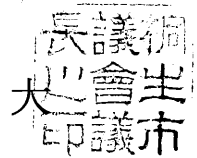 桐生市
議會議
長之印
大